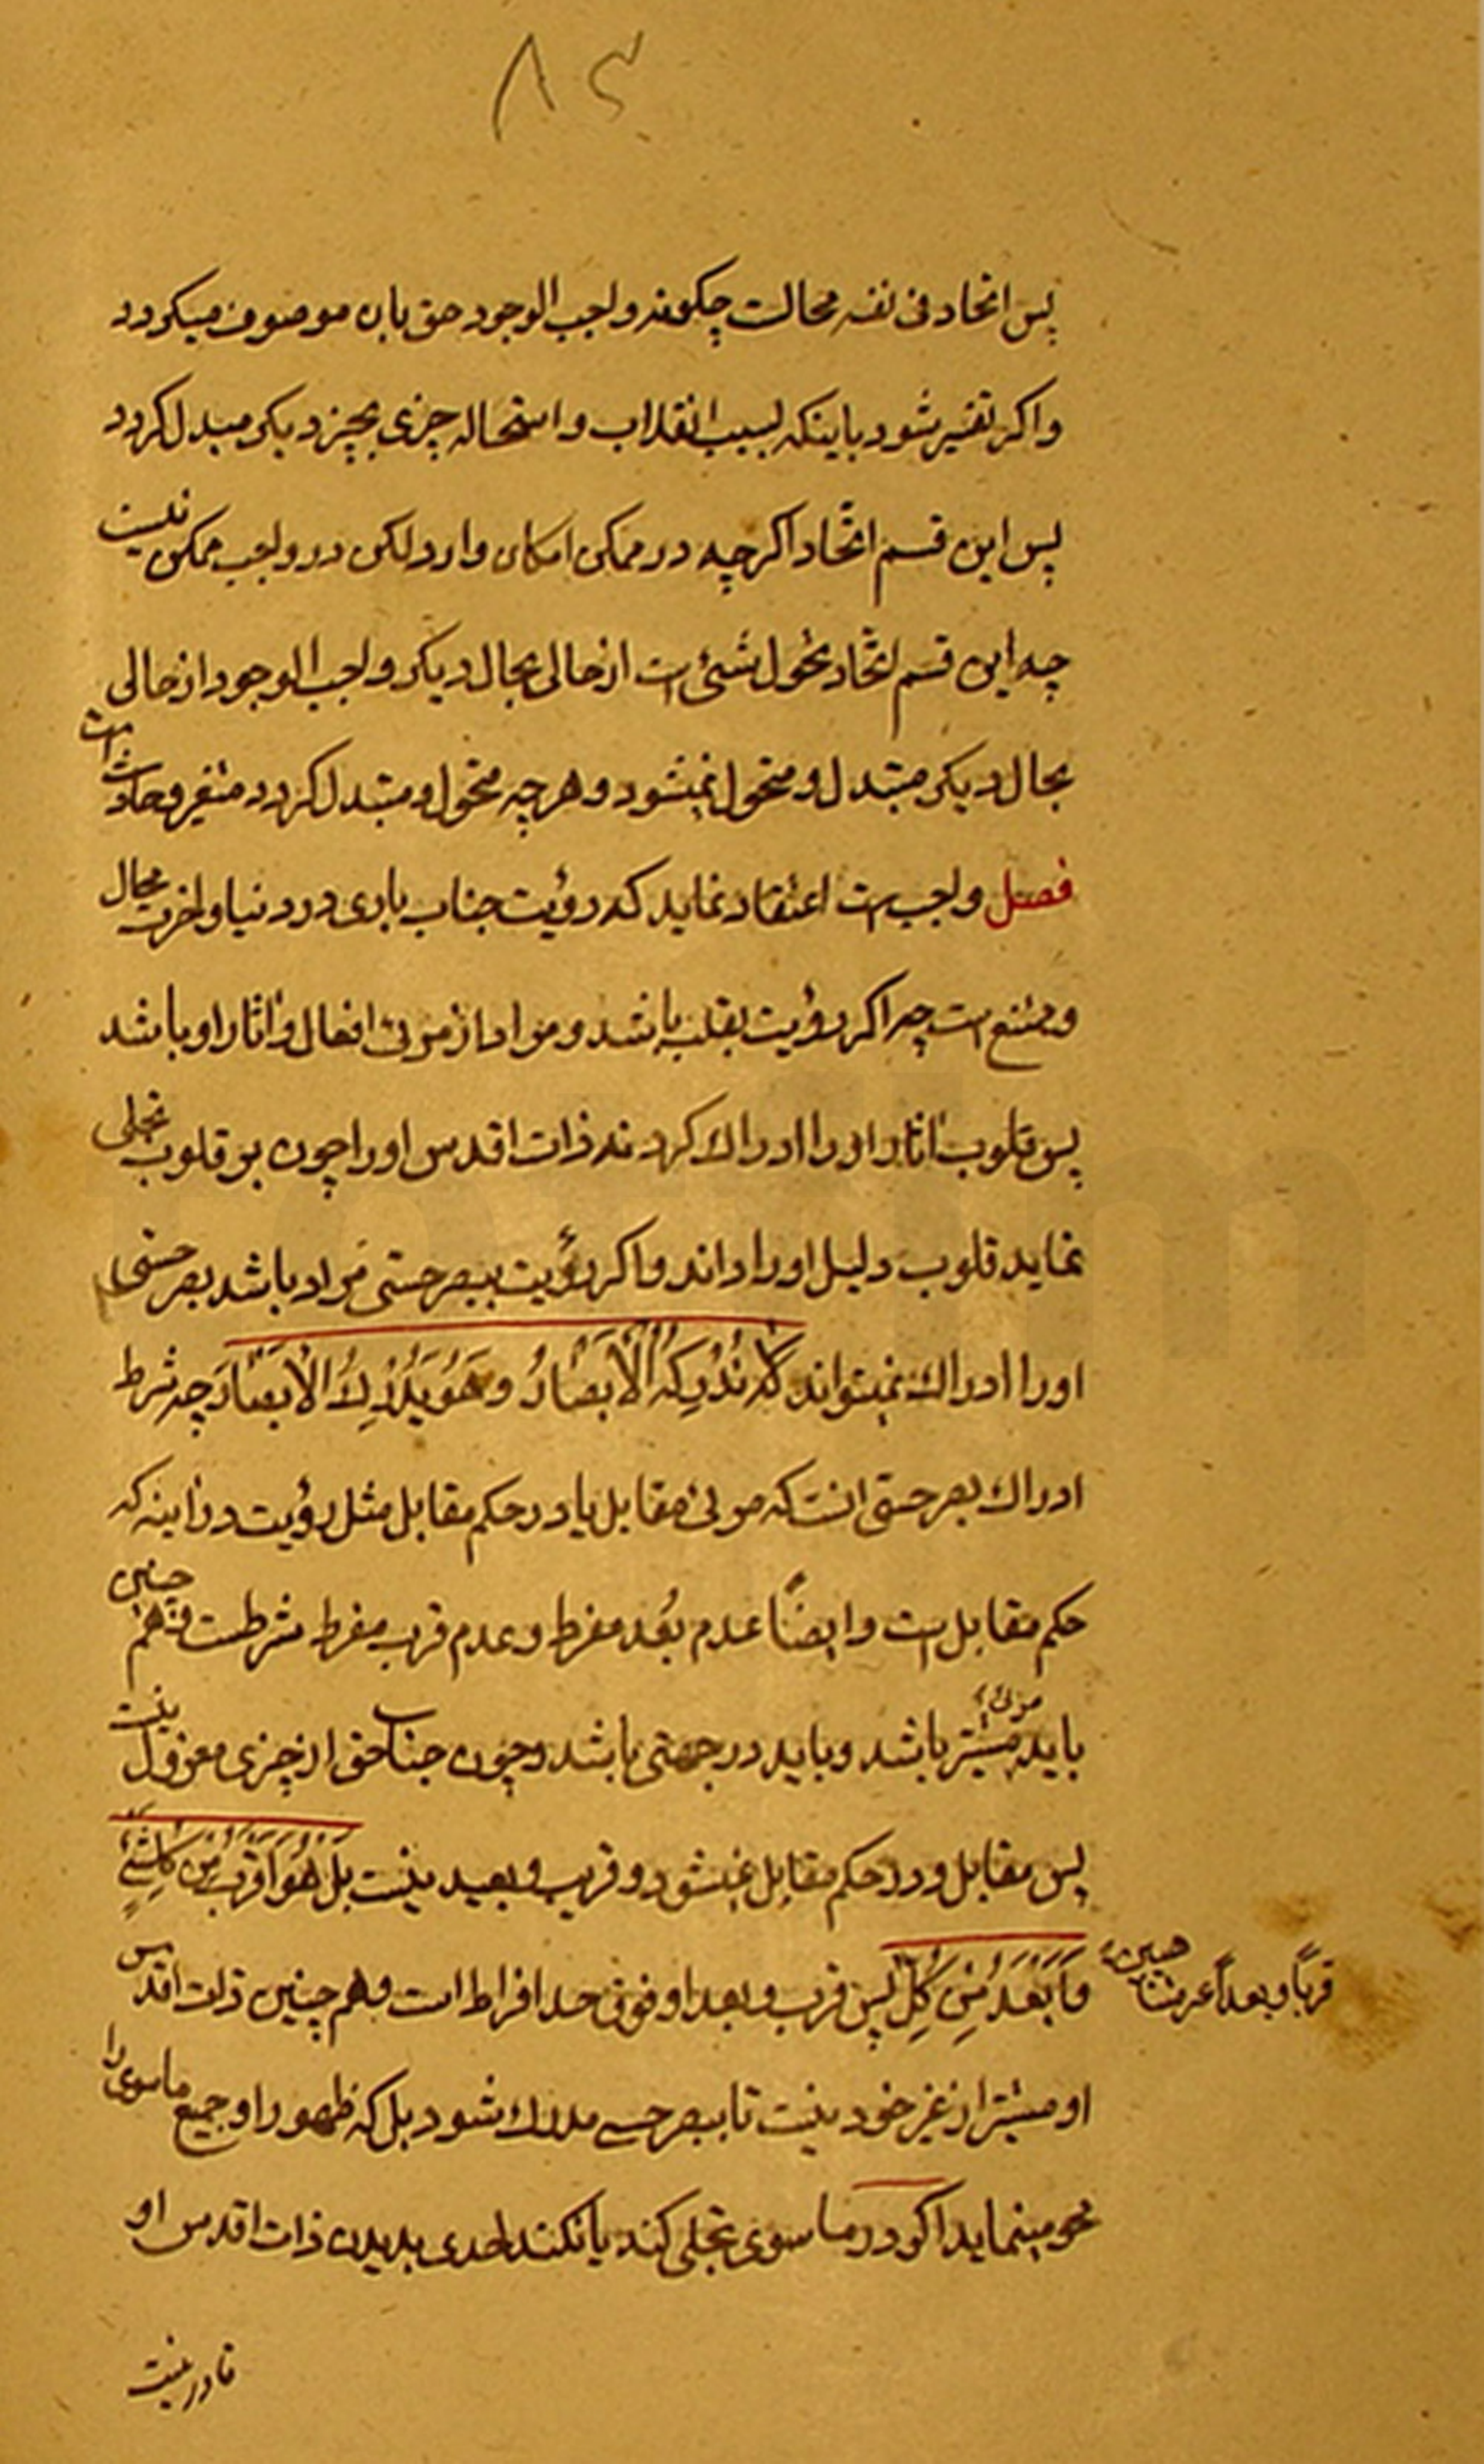 ۸۴
پس اتحاد فی نفسه محالست چکونه واجب الوجود حق بان موصوف میکردد
واکر تفسیر شود باینکه بسبب انقلاب و استحاله چیزی بچیز دیکر مبدل کردد
پس این قسم اتّحاد اکرچه در ممکن امکان دارد لکن در واجب ممکن نیست
چه این قسم اتّحاد تحول شئی است از حالی بحال دیکر و واجب الوجود از حالی
بحال دیکر متبدل و متحول نمیشود و هرچه متحول و متبدل کردد متغیر و حادث است
فصل واجب است اعتقاد نماید که رؤیت جناب باری در دنیا و اخرت محال
و ممتنع است چه اکر رؤیت بقلب باشد و مراد از مرئی افعال و اثار او باشد
پس قلوب اثار او را ادراک کرد نه ذات اقدس او را چون بر قلوب تجلی
نماید قلوب دلیل او را داند و اکر رؤیت ببصر حسّی مراد باشد بصر حسّی
او را ادراک نمیتواند لا تُدْرِکُهُ الْاَبْصارُ وَ هُوَ یُدْرِکُ الْاَبْصارَ چه شرط
ادراک بصر حسّی انست که مرئی مقابل یا در حکم مقابل مثل رؤیت در اینه که
حکم مقابل است و ایضاً عدم بُعد مفرط و عدم قرب مفرط شرطست و هم چنین
باید مرئی مستتر باشد و باید در جهتی باشد و چون جناب حق از چیزی معزول نیست
پس مقابل و در حکم مقابل نمیشود و قریب و بعید نیست بَلْ هُوَ اَقْرَبُ مِنْ کُلِّ شَیْءٍ
وَ اَبْعَدُ مِنْ کُلِّ پس قرب و بعد او فوق حد افراط است و هم چنین ذات اقدس
قرباً و بعداً
او مستتر از غیر خود نیست تا ببصر حسی مدرک شود بل که ظهور او جمیع ماسوی را
محو مینماید اکر در ماسوی تجلی کند یا نکند احدی بدیدن ذات اقدس او
قادر نیست